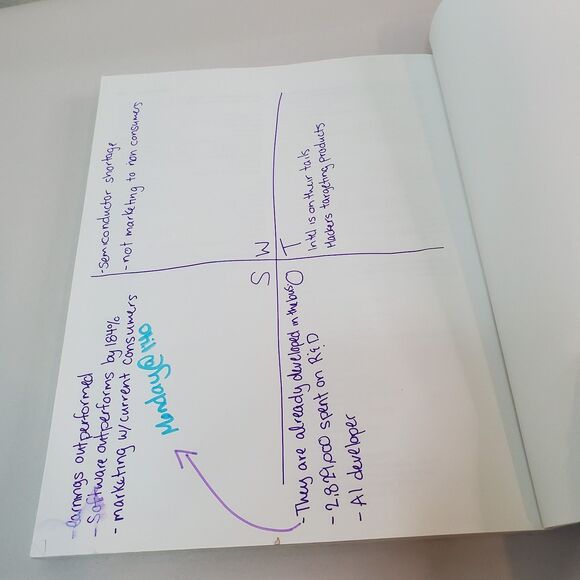 - earnings outperformed
- Software outperforms by 184%
- marketing w/ current consumers
Monday @ 11:40
S
- semiconductor shortage
- not marketing to non consumers
W
O
- They are already developed in the bus.
- 2,829,000 spent on R&D
- AI developer
T
Intel is on their tails
Hackers targeting products